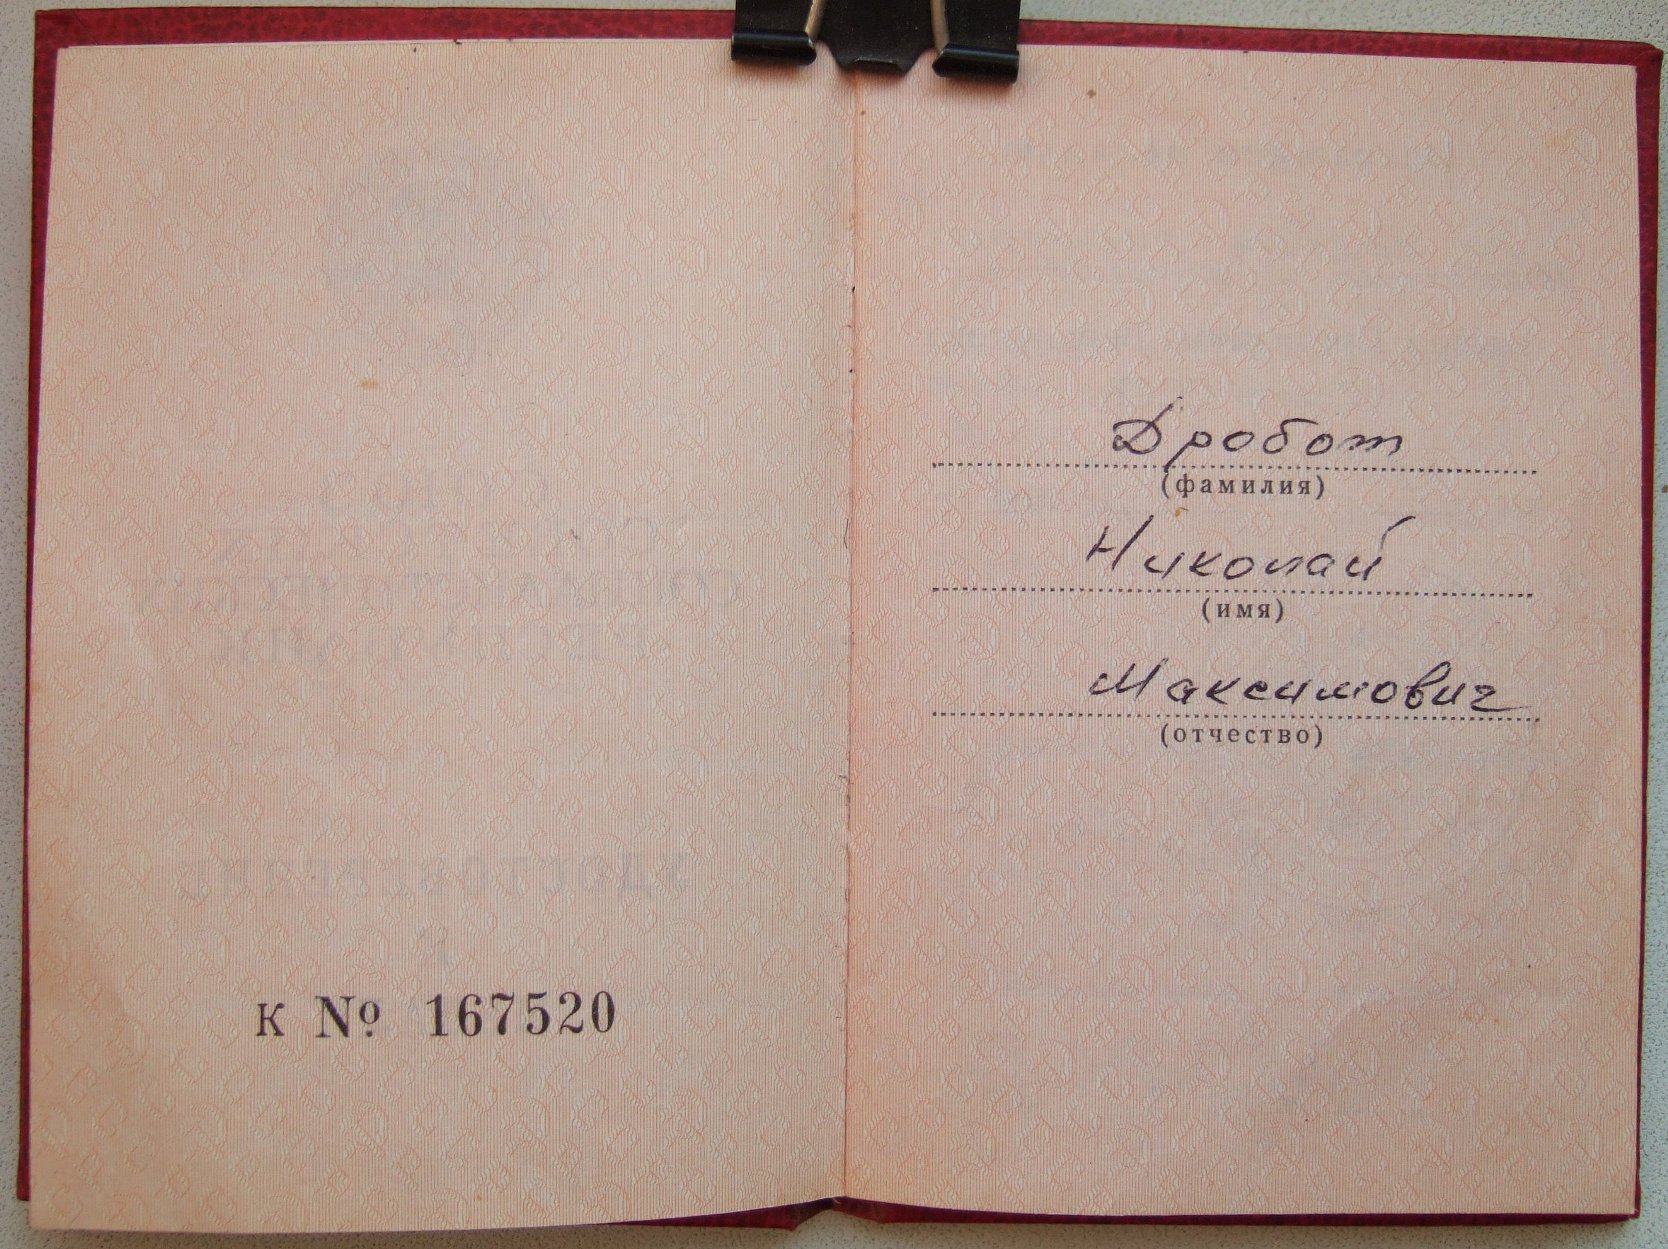 К № 167520
Дробот
(фамилия)
Николай
(имя)
Максимович
(отчество)